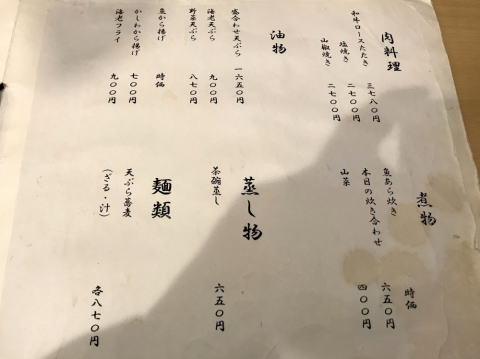 肉料理
和牛ロースたたき 三七八〇円
塩焼き 二七〇〇円
山椒焼き 二七〇〇円
油物
盛合わせ天ぷら 一六五〇円
海老天ぷら 九〇〇円
野菜天ぷら 八七〇円
魚から揚げ 時価
かしわから揚げ 七〇〇円
海老フライ 九〇〇円
煮物
魚あら炊き 時価
本日の炊き合わせ 六五〇円
山菜 四〇〇円
蒸し物
茶碗蒸し 六五〇円
麺類
天ぷら蕎麦
(ざる・汁) 各八七〇円